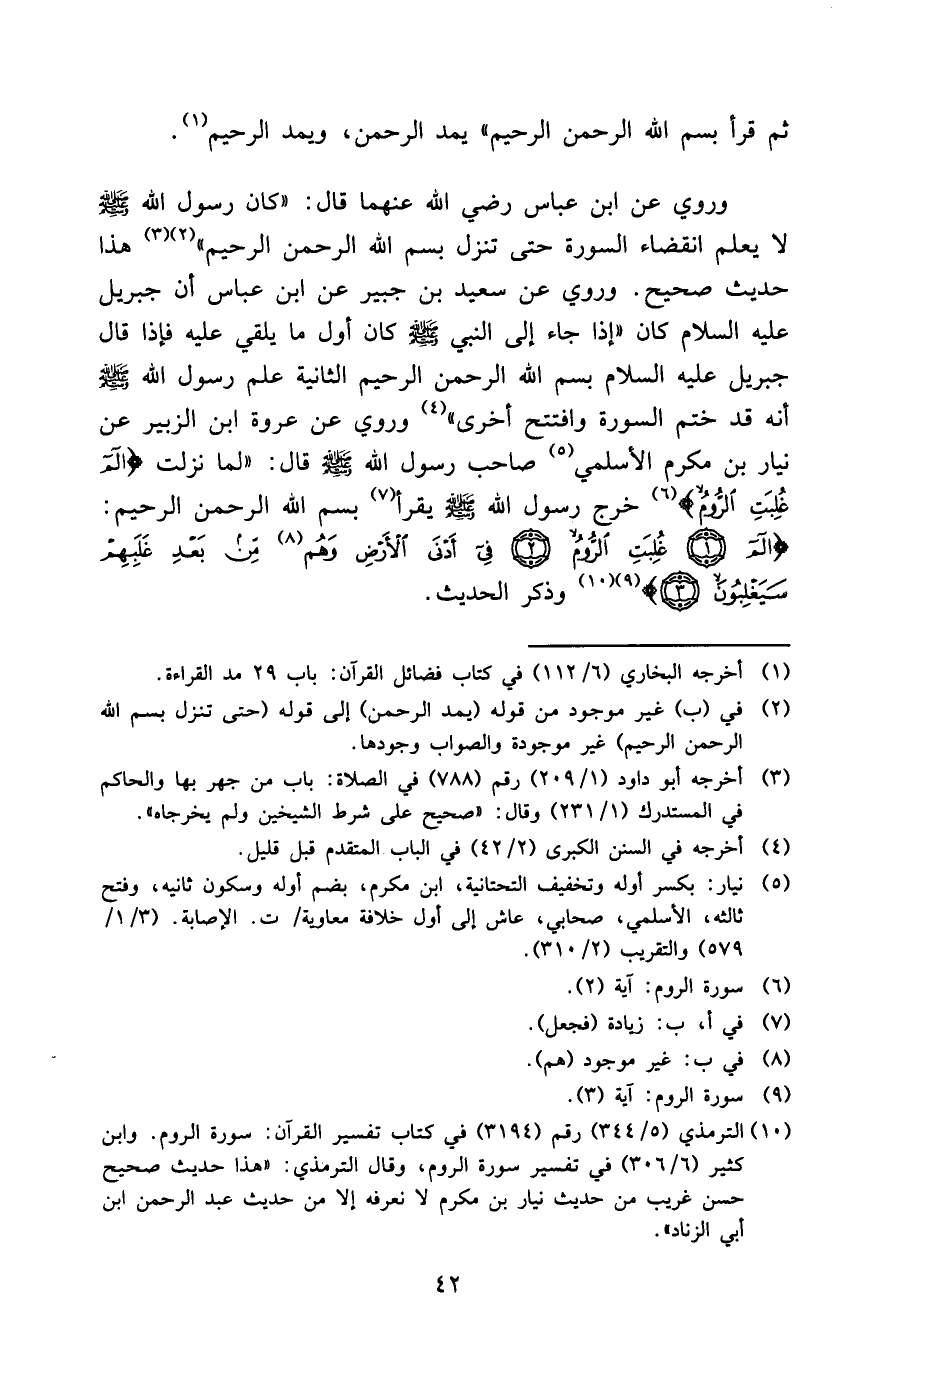 ثم قرأ بسم الله الرحمن الرحيم» يمد الرحمن، ويمد الرحيم(١).
وروي عن ابن عباس رضي الله عنهما قال: «كان رسول الله ﷺ
لا يعلم انقضاء السورة حتى تنزل بسم الله الرحمن الرحيم»(٢)(٣) هذا
حديث صحيح. وروي عن سعيد بن جبير عن ابن عباس أن جبريل
عليه السلام كان «إذا جاء إلى النبي ﷺ كان أول ما يلقي عليه فإذا قال
جبريل عليه السلام بسم الله الرحمن الرحيم الثانية علم رسول الله ﷺ
أنه قد ختم السورة وافتتح أخرى»(٤) وروي عن عروة ابن الزبير عن
نيار بن مكرم الأسلمي(٥) صاحب رسول الله ﷺ قال: «لما نزلت ﴿الٓمٓ
غُلِبَتِ ٱلرُّومُۙ﴾(٦) خرج رسول الله ﷺ يقرأ(٧) بسم الله الرحمن الرحيم:
﴿الٓمٓ ۝١ غُلِبَتِ ٱلرُّومُۙ ۝٢ فِيٓ أَدْنَى ٱلْأَرْضِ وَهُم(٨) مِّنۢ بَعْدِ غَلَبِهِمْ
سَيَغْلِبُونَۙ ۝٣﴾(٩)(١٠) وذكر الحديث.
(١) أخرجه البخاري (١١٢/٦) في كتاب فضائل القرآن: باب ٢٩ مد القراءة.
(٢) في (ب) غير موجود من قوله (يمد الرحمن) إلى قوله (حتى تنزل بسم الله
الرحمن الرحيم) غير موجودة والصواب وجودها.
(٣) أخرجه أبو داود (٢٠٩/١) رقم (٧٨٨) في الصلاة: باب من جهر بها والحاكم
في المستدرك (٢٣١/١) وقال: «صحيح على شرط الشيخين ولم يخرجاه».
(٤) أخرجه في السنن الكبرى (٤٢/٢) في الباب المتقدم قبل قليل.
(٥) نيار: بكسر أوله وتخفيف التحتانية، ابن مكرم، بضم أوله وسكون ثانيه، وفتح
ثالثه، الأسلمي، صحابي، عاش إلى أول خلافة معاوية/ ت. الإصابة. (١/٣/
٥٧٩) والتقريب (٣١٠/٢).
(٦) سورة الروم: آية (٢).
(٧) في أ، ب: زيادة (فجعل).
(٨) في ب: غير موجود (هم).
(٩) سورة الروم: آية (٣).
(١٠) الترمذي (٣٤٤/٥) رقم (٣١٩٤) في كتاب تفسير القرآن: سورة الروم. وابن
كثير (٣٠٦/٦) في تفسير سورة الروم، وقال الترمذي: «هذا حديث صحيح
حسن غريب من حديث نيار بن مكرم لا نعرفه إلا من حديث عبد الرحمن ابن
أبي الزناد».
٤٢